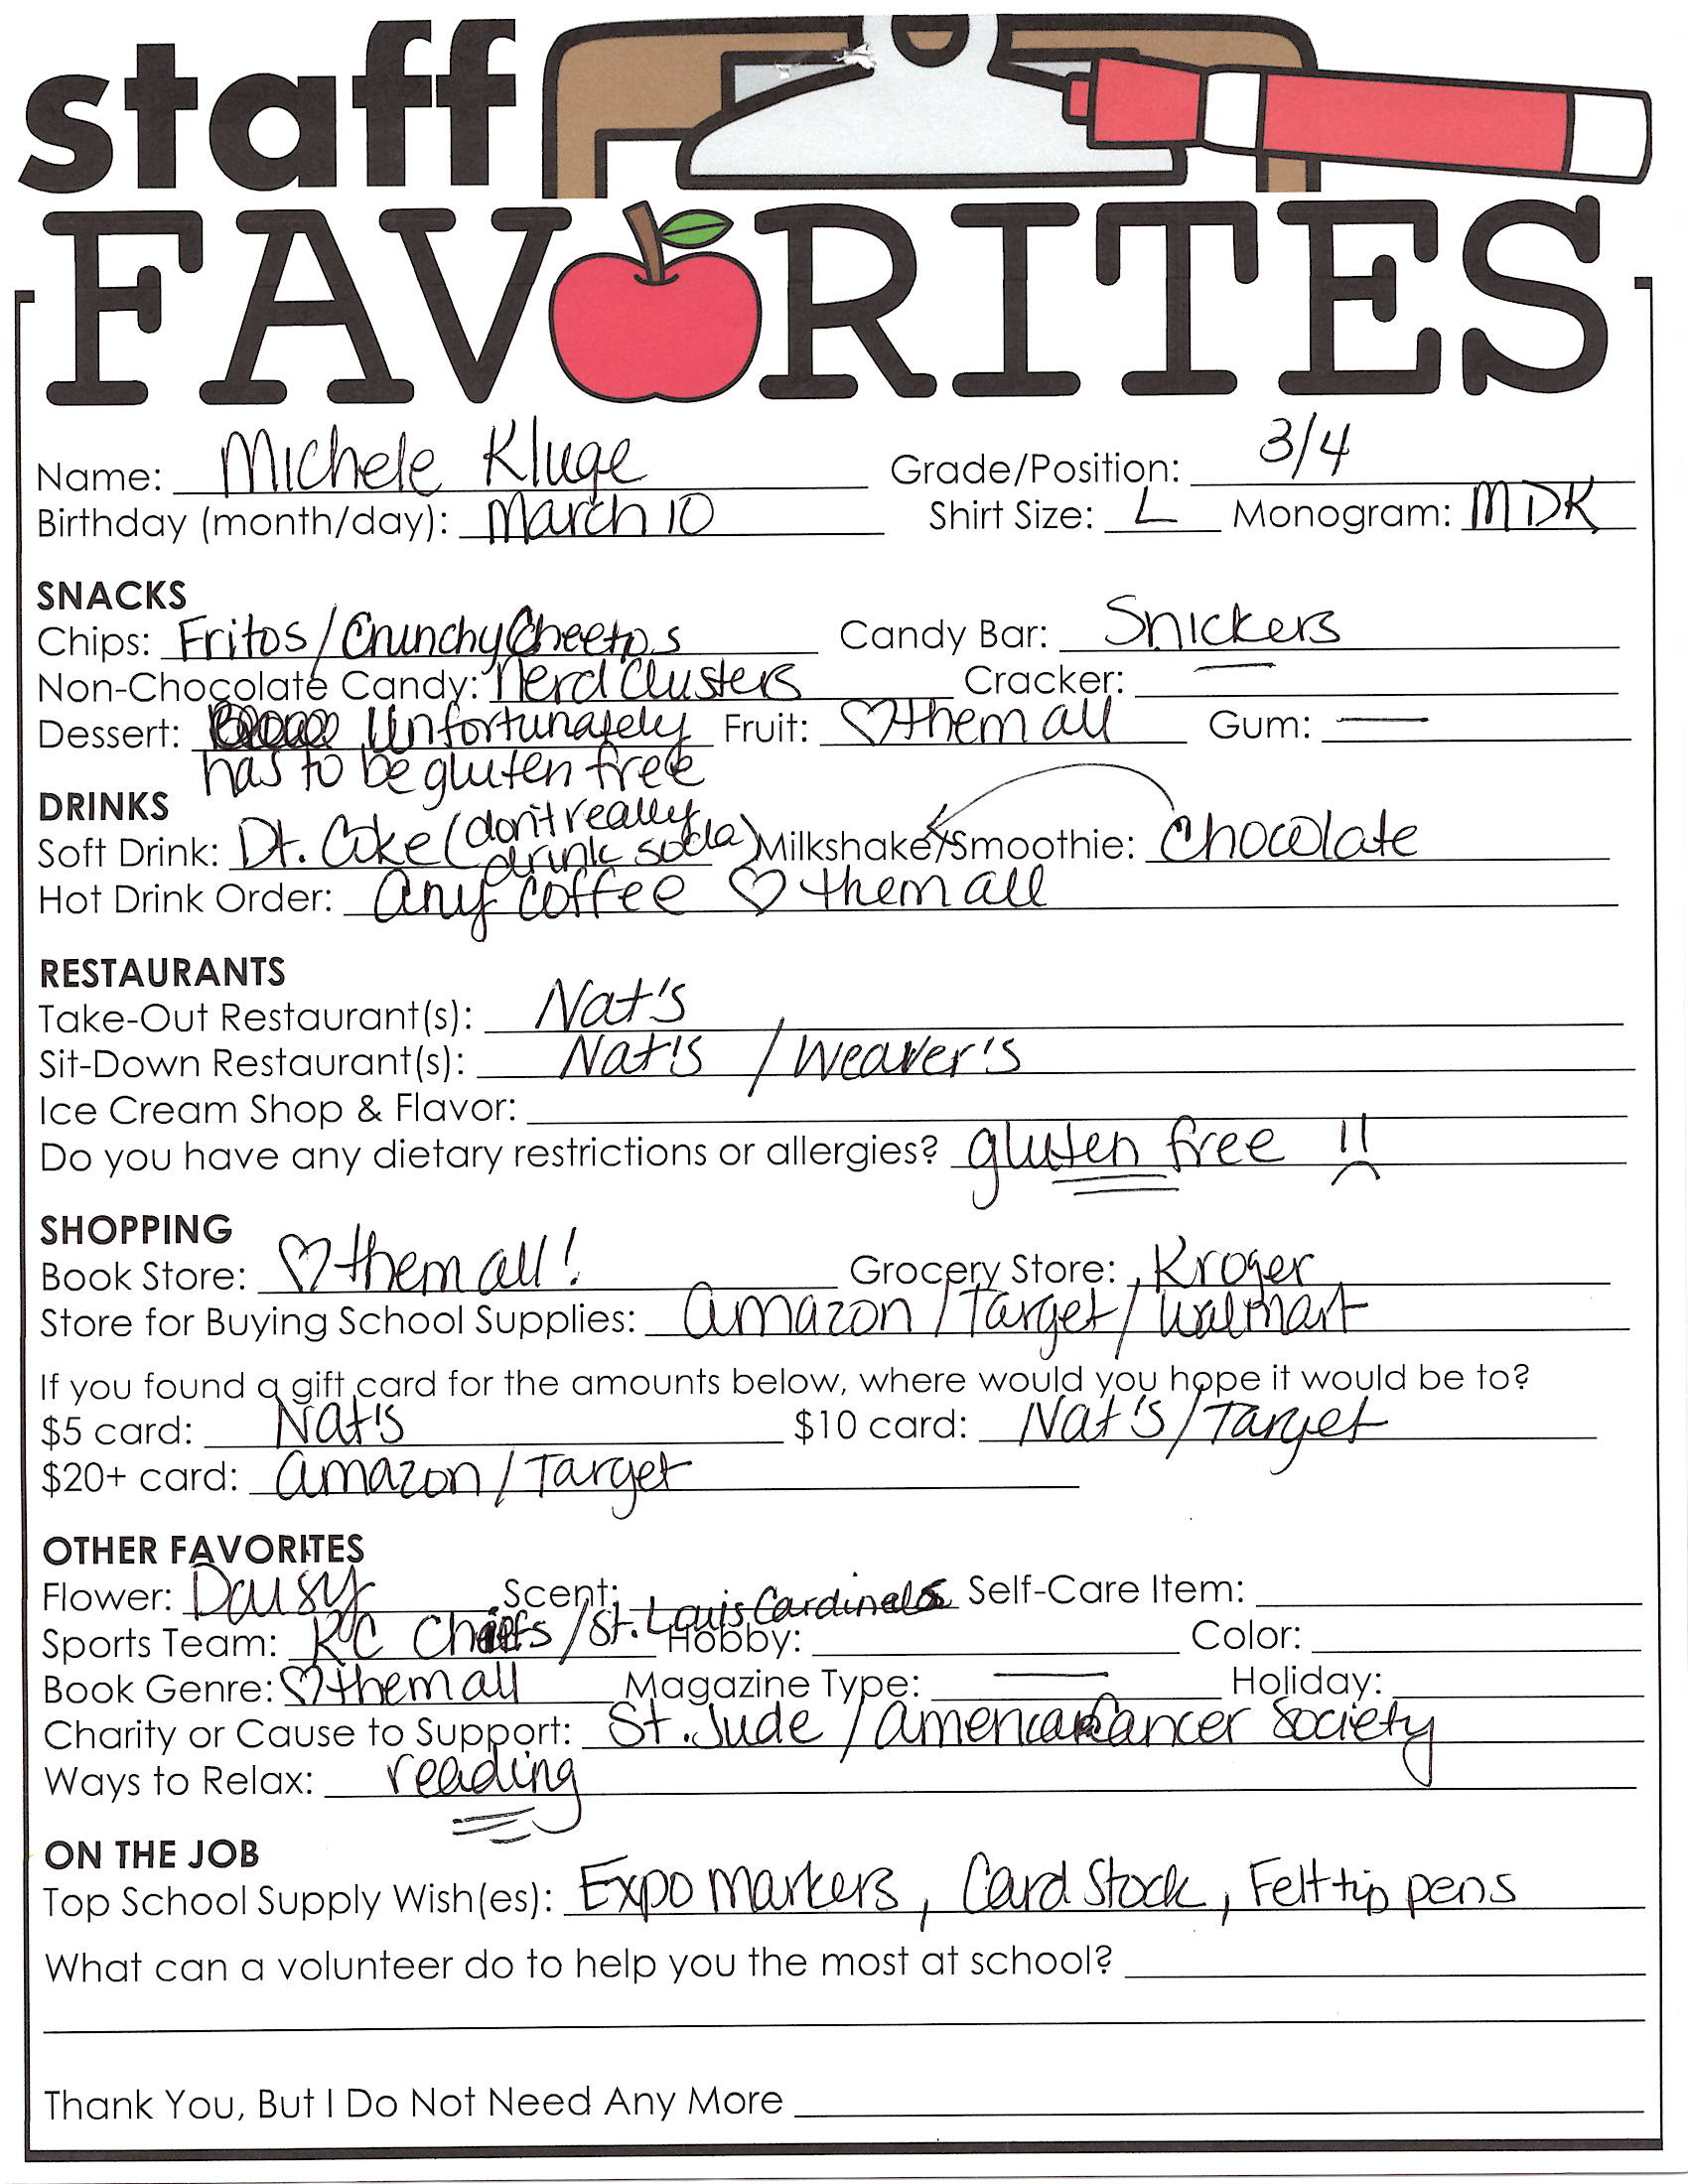 staff
FAVORITES
Name: Michele Kluge Grade/Position: 3/4
Birthday (month/day): March 10 Shirt Size: L Monogram: MDK
SNACKS
Chips: Fritos/Crunchy Cheetos Candy Bar: Snickers
Non-Chocolate Candy: Nerd Clusters Cracker: —
Dessert: Unfortunately Fruit: ♡ them all Gum: —
has to be gluten free
DRINKS
Soft Drink: Dt. Coke (don't really drink soda) Milkshake/Smoothie: Chocolate
Hot Drink Order: any coffee ♡ them all
RESTAURANTS
Take-Out Restaurant(s): Nat's
Sit-Down Restaurant(s): Nat's / Weaver's
Ice Cream Shop & Flavor:
Do you have any dietary restrictions or allergies? gluten free !!
SHOPPING
Book Store: ♡ them all! Grocery Store: Kroger
Store for Buying School Supplies: Amazon / Target / Walmart
If you found a gift card for the amounts below, where would you hope it would be to?
$5 card: Nat's $10 card: Nat's / Target
$20+ card: Amazon / Target
OTHER FAVORITES
Flower: Daisy Scent: Self-Care Item:
Sports Team: KC Chiefs / St. Louis Cardinals Hobby: Color:
Book Genre: ♡ them all Magazine Type: — Holiday:
Charity or Cause to Support: St. Jude / American Cancer Society
Ways to Relax: reading
ON THE JOB
Top School Supply Wish(es): Expo markers, Card Stock, Felt tip pens
What can a volunteer do to help you the most at school?
Thank You, But I Do Not Need Any More